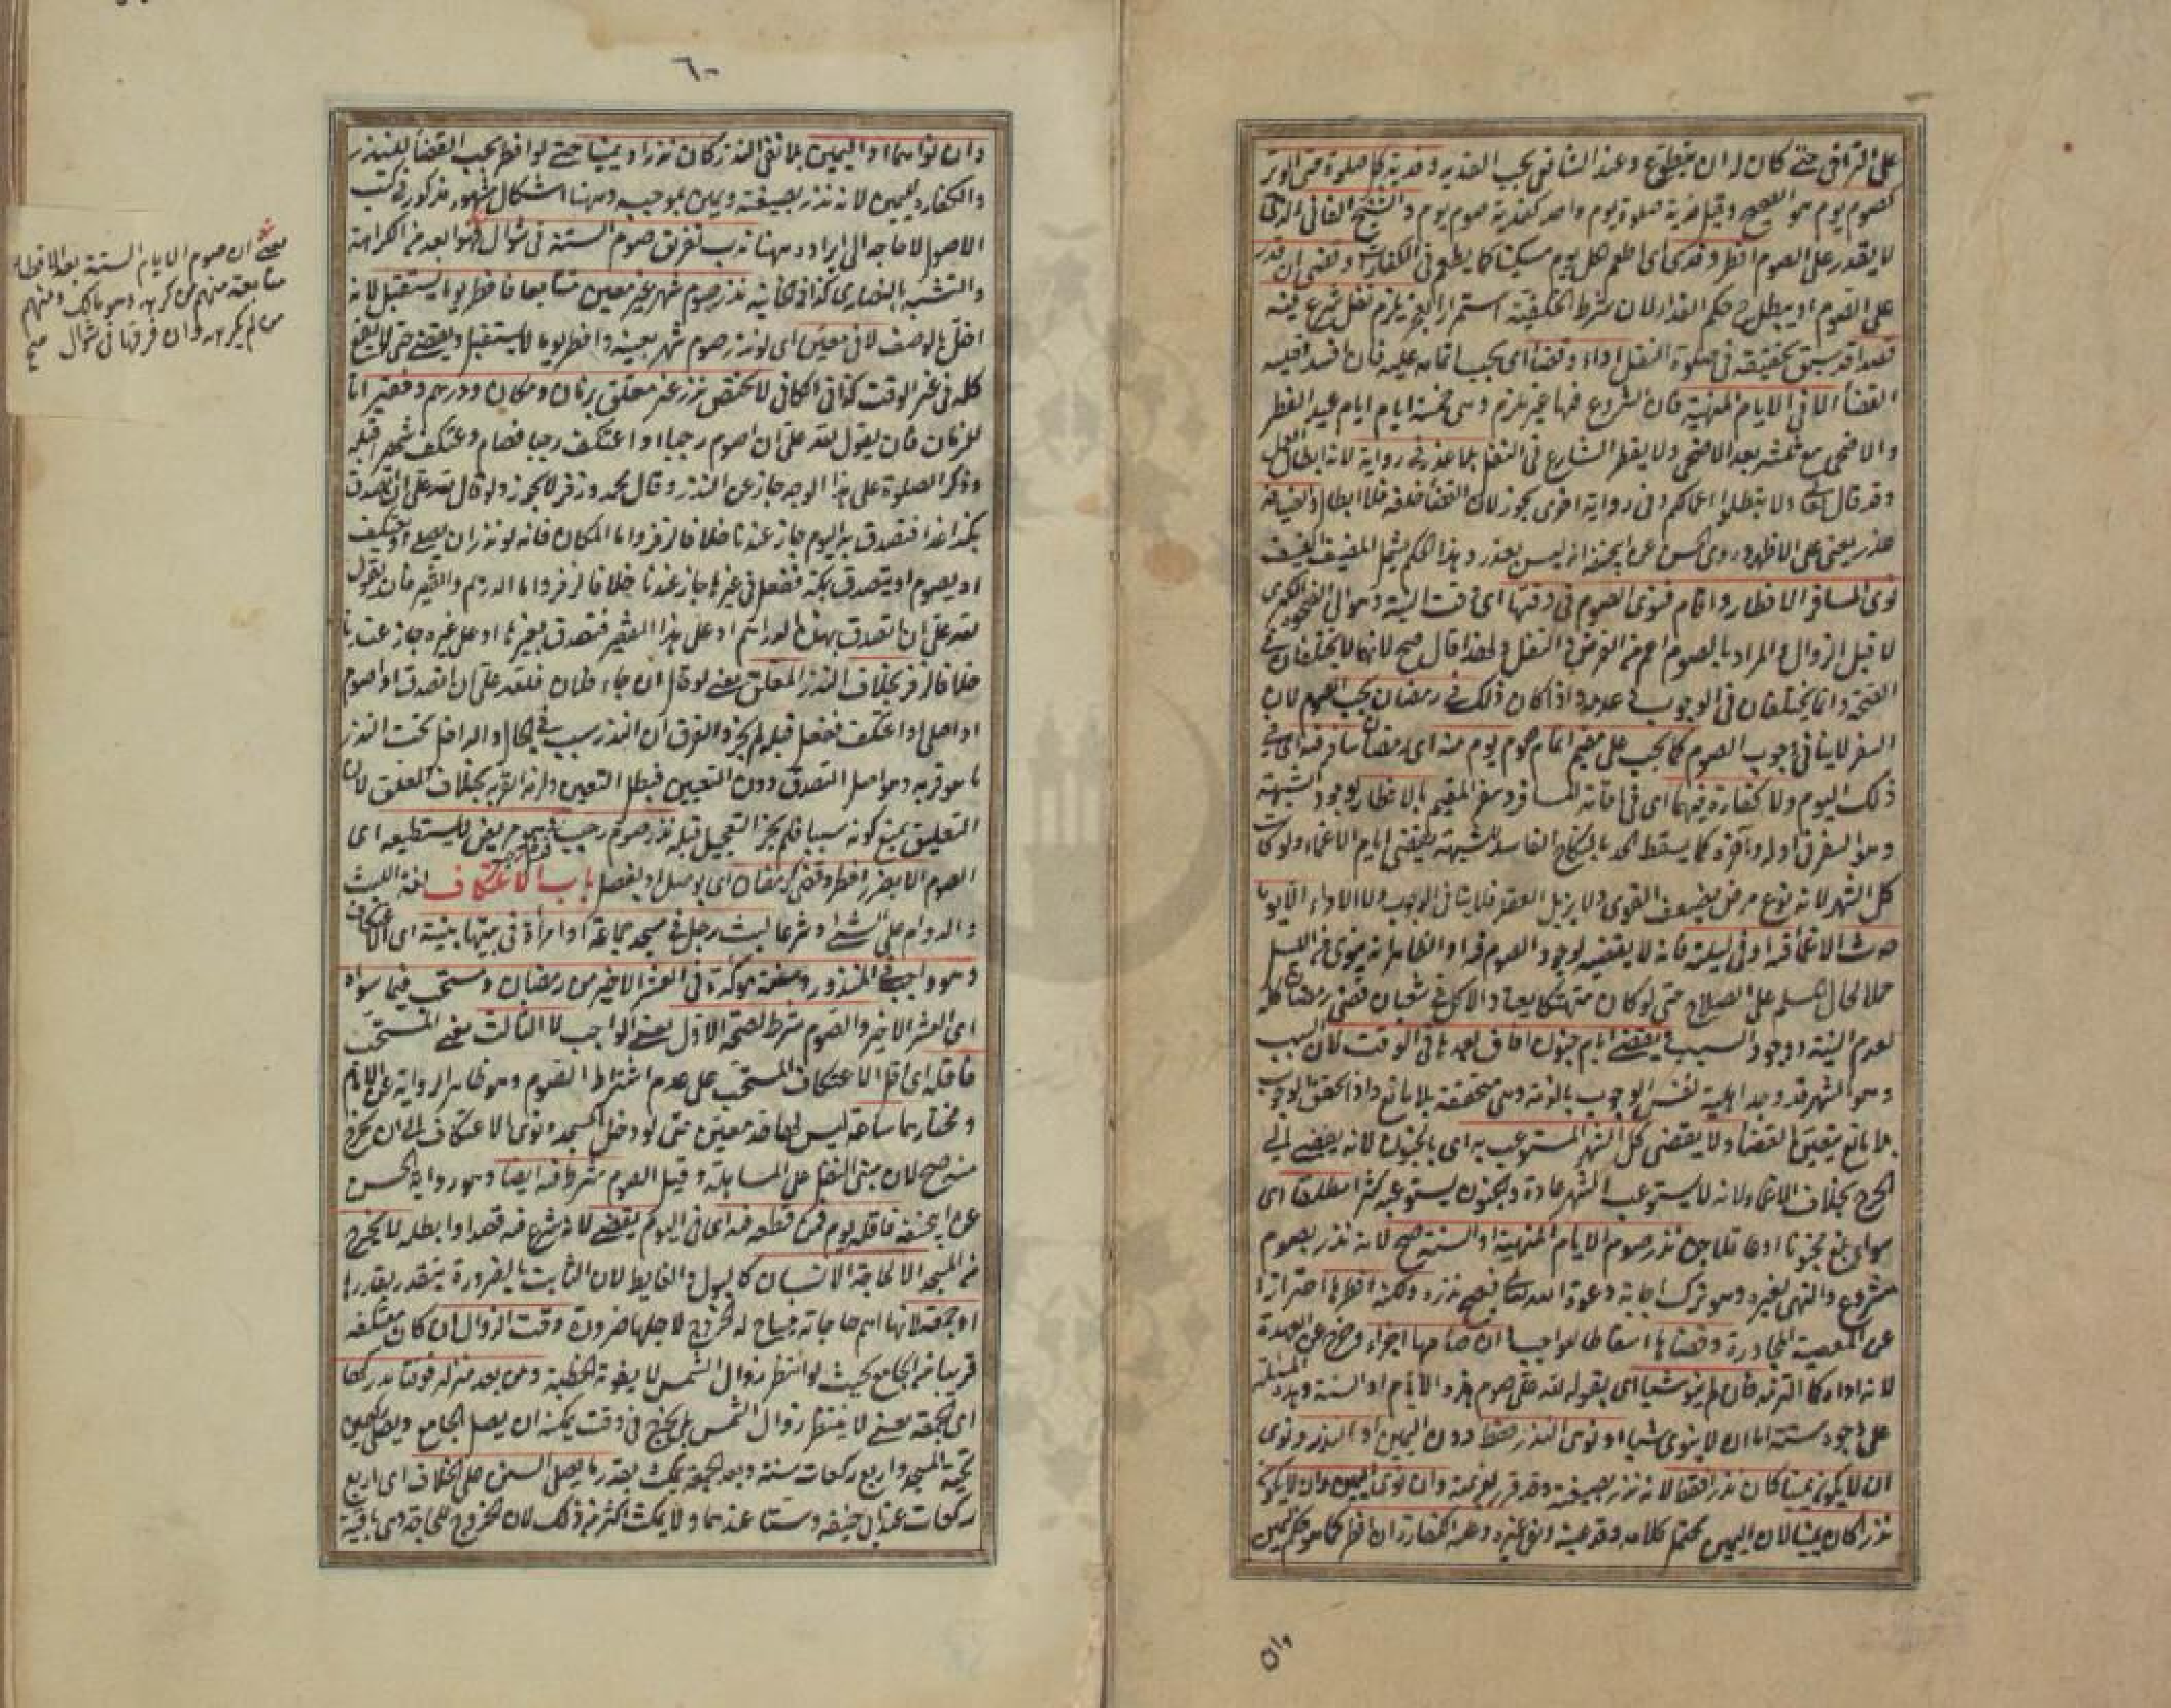 على التراخي حتى كان له ان يتطوع وعند الشافعي يجب الفدية وفدية كل صلوة حتى الوتر
كصوم يوم هو الصحيح وقيل فدية صلوة يوم واحد كفدية صوم يوم والشيخ الفاني الذي
لا يقدر على الصوم افطر وفدى اى اطعم لكل يوم مسكينا كما يطعم في الكفارات وقضى ان قدر
على الصوم اذ يبطل ح حكم الفداء لان شرط الخلفية استمرار العجز يلزم نفل شرع فيه
قصدا قد سبق تحقيقه في صلوة النفل اداء وقضاء اى يجب اتمامه عليه فان افسد فعليه
القضاء الا في الايام المنهية فان الشروع فيها غير ملزم وهى خمسة ايام ايام عيد الفطر
والاضحى مع ثلثة بعد الاضحى ولا يفطر الشارع في النفل بلا عذر في رواية لانه ابطال العمل
وقد قال الله تعالى ولا تبطلوا اعمالكم وفي رواية اخرى يجوز لان القضاء خلفه فلا ابطال والضيافة
عذر يعنى على الاظهر وروى الحسن عن ابى حنيفة انه ليس بعذر وهذا الحكم يشمل المضيف والضيف
نوى المسافر الافطار واقام فنوى الصوم في وقتها اى وقت النية وهو الى الضحوة الكبرى
لا قبل الزوال والمراد بالصوم اعم من الفرض والنفل ولهذا قال صح لانهما لا يختلفان في
الصحة وانما يختلفان في الوجوب وعدمه واذا كان ذلك في رمضان يجب الصوم لان
السفر لا ينافي وجوب الصوم كما يجب على مقيم اتمام صوم يوم منه اى رمضان سافر فيه اى في
ذلك اليوم ولا كفارة فيهما اى في اقامة المسافر وسفر المقيم بالافطار لوجود الشبهة
وهو السفر في اوله وآخره كما يسقط الحد بالنكاح الفاسد للشبهة يقضى ايام الاغماء ولو كانت
كل الشهر لانه نوع مرض يضعف القوى ولا يزيل العقل فلا ينافي الوجوب ولا الاداء الا يوما
حدث الاغماء فيه او في ليلته فانه لا يقضيه لوجود الصوم فيه اذ الظاهر انه ينوى من الليل
حملا لحال المسلم على الصلاح حتى لو كان متهتكا يعتاد الاكل في شعبان قضى رمضان كله
لعدم النية ووجود السبب ويقضى ايام جنون افاق بعدها في الوقت لان السبب
وهو الشهر قد وجد واهلية نفس الوجوب بالذمة وهى متحققة بلا مانع واذا تحقق الوجوب
بلا مانع يتعين القضاء ولا يقضى كل الشهر المستوعب به اى بالجنون لانه يفضى الى
الحرج بخلاف الاغماء لانه لا يستوعب الشهر عادة والجنون يستوعبه كثيرا مطلقا اى
سواء بلغ مجنونا او عاقلا جن نذر صوم الايام المنهية او السنة صح لانه نذر بصوم
مشروع والنهى لغيره وهو ترك اجابة دعوة الله تعالى فيصح نذره ولكنه افطرها احترازا
عن المعصية المجاورة وقضاها اسقاطا لواجب وان صامها اجزاه وخرج عن العهدة
لانه اداه كما التزمه فان لم ينو شيئا اى بقوله لله على صوم هذه الايام او السنة وهذه المسئلة
على وجوه ستة اما ان لا ينوى شيئا او نوى النذر فقط دون اليمين او النذر ونوى
ان لا يكون يمينا كان نذرا فقط لانه نذر بصيغته وقد قرر بعزيمة وان نوى اليمين وان لا يكون
نذرا كان يمينا لان اليمين محتمل كلامه وقد عينه ونفى غيره وعليه الكفارة ان افطر كما هو حكم اليمين
وان
٦٠
وان نواهما او اليمين بلا نفى النذر كان نذرا ويمينا حتى لو افطر يجب القضاء للنذر
والكفارة لليمين لانه نذر بصيغته ويمين بموجبه وههنا اشكال مشهور مذكور في كتب
الاصول لا حاجة الى ايراده ههنا ندب تفريق صوم الستة في شوال فهو ابعد من الكراهة
والتشبه بالنصارى كذا في الخانية نذر صوم شهر غير معين متتابعا فافطر يوما يستقبل لانه
اخل بالوصف لا في معين اى لو نذر صوم شهر بعينه وافطر يوما لا يستقبل ويقضى حتى لا يقع
كله في غير الوقت كذا في الكافي لا يختص نذر غير معلق بزمان ومكان ودرهم وفقير اما
الزمان فان يقول لله على ان اصوم رجبا او اعتكف رجبا فصام واعتكف شهرا قبله
وذكر الصلوة على هذا الوجه جاز عن النذر وقال محمد وزفر لا يجوز ولو قال لله على ان اتصدق
بكذا غدا فتصدق به اليوم جاز عندنا خلافا لزفر واما المكان فانه لو نذر ان يصلى او يعتكف
او يصوم او يتصدق بمكة ففعل في غيرها جاز عندنا خلافا لزفر واما الدرهم والفقير فان يقول
لله على ان اتصدق بهذا الدراهم او على هذا الفقير فتصدق بغيرها او على غيره جاز عندنا
خلافا لزفر بخلاف النذر المعلق يعنى لو قال ان جاء فلان فلله على ان اتصدق او اصوم
او اصلى او اعتكف ففعل قبله لم يجز والفرق ان النذر سبب في الحال والداخل تحت النذر
ما هو قربة وهو اصل التصدق دون التعيين فبطل التعيين ولزمه القربة بخلاف المعلق لان
التعليق يمنع كونه سببا فلم يجز التعجيل قبله نذر صوم رجب فدخل رجب وهو مريض لا يستطيعه اى
الصوم الا بضرر افطر وقضى كرمضان اى يوصل او يفصل باب الاعتكاف لغة اللبث
والدوام على الشئ وشرعا لبث رجل في مسجد جماعة او امرأة في بيتها بنيته اى الاعتكاف
وهو واجب في المنذور وسنة مؤكدة في العشر الاخير من رمضان ومستحب فيما سواه
اى العشر الاخير والصوم شرط لصحة الاول يعنى الواجب لا الثالث يعنى المستحب
فاقله اى اقل الاعتكاف المستحب على عدم اشتراط الصوم وهو ظاهر الرواية عن الامام
ومختارهما ساعة ليس لها حد معين حتى لو دخل المسجد ونوى الاعتكاف الى ان يخرج
منه صح لان مبنى النفل على المساهلة وقيل الصوم شرط فيه ايضا وهو رواية الحسن
عن ابى حنيفة فاقله يوم فمن قطعه فيه اى في اليوم يقضى لانه شرع فيه قصدا وابطله لا يخرج
من المسجد الا لحاجة الانسان كالبول والغائط لان الثابت بالضرورة يتقدر بقدرها
او جمعة لانها اهم حاجاته فيباح له الخروج لاجلها ضرورة وقت الزوال ان كان معتكفه
قريبا من الجامع بحيث لو انتظر زوال الشمس لا يفوته الخطبة ومن بعد منزله فوقتا يدركها
اى الجمعة يعنى لا ينتظر زوال الشمس بل يخرج في وقت يمكنه ان يصل الجامع ويصلى ركعتين
تحية المسجد واربع ركعات سنة وبعد الجمعة يمكث بقدر ما يصلى السنن على الخلاف اى اربع
ركعات عند ابى حنيفة وستا عندهما ولا يمكث اكثر من ذلك لان الخروج للحاجة وهى باقية
يعنى ان صوم الايام الستة بعد الافطار
متتابعة منهم من كرهه وهو مالك ومنهم
من لم يكرهه وان فرقها في شوال صح